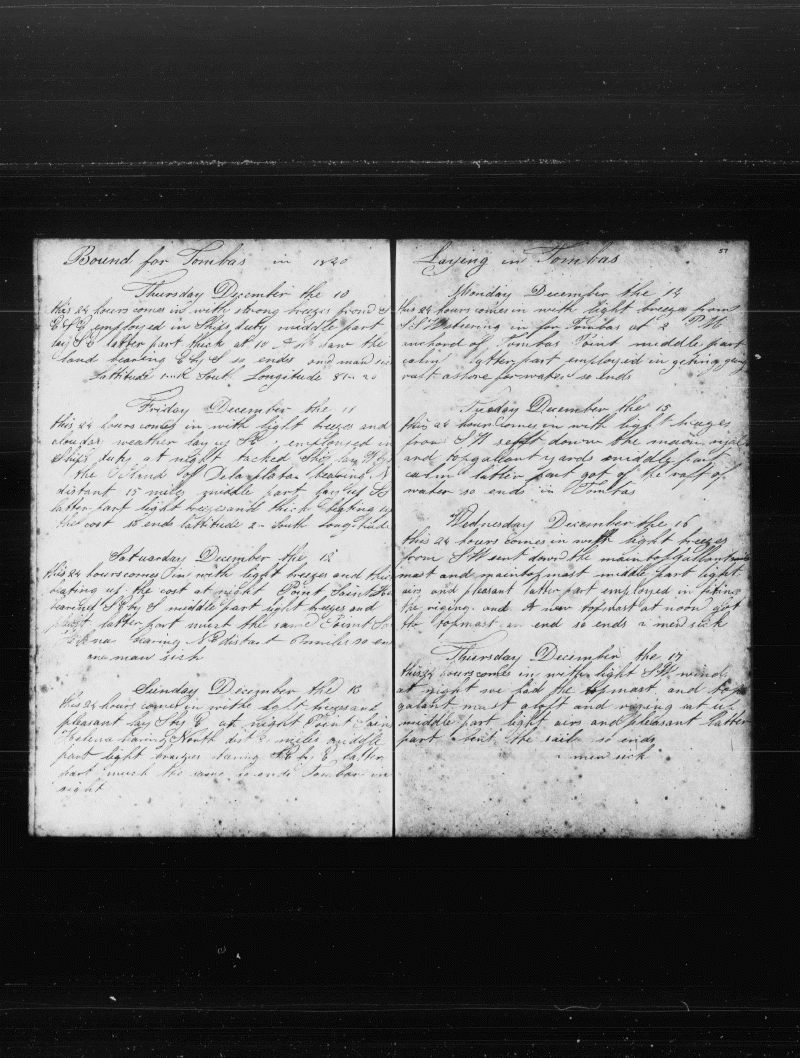 Bound for Tombas in 1820
Thursday December the 10
this 24 hours comes in with strong breezes from S
E & S E employed in Ships duty middle part
lay S E latter part thick at 10 A M saw the
land bearing E by S so ends one man sick
Lattitude South Longitude 81 20
Friday December the 11
this 24 hours comes in with light breezes and
cloudy weather lay up employed in
Ships duty at night tacked Ship lay
the Island of Delaplata bearing
distant 15 miles middle part
latter part light breezes and thick beating up
the cost so ends lattitude 2 South Longitude
Satuarday December the 12
this 24 hours comes in with light breezes and thick
beating up the cost at night Point Saint He
beared S E by S middle part light breezes and
latter part much the same Point St
Helena bearing N E distant miles so ends
one man sick
Sunday December the 13
this 24 hours comes in with light breezes and
pleasant lay S by E at night Point Saint
Helena baring North dist 2 miles middle
part light breezes latter
part much the same so ends Tombas in
sight
57
Laying in Tombas
Monday December the 14
this 24 hours comes in with light breezes from
S W steering in for Tombas at 2 P M
anchord of Tombas Point middle part
calm latter part employed in geting
raft ashore for water so ends
Tuesday December the 15
this 24 hours comes in with light breezes
from S W sent down the main royal
and topgallant yards middle part
calm latter part got of the raft of
water so ends in Tombas
Wednesday December the 16
this 24 hours comes in with light breezes
from S W sent down the main topgallant
mast and maintopmast middle part light
airs and pleasant latter part employed in fiting
the riging and A new topmast at noon got
the topmast on end so ends 2 men sick
Thuersday December the 17
this 24 hours comes in with light S W winds
at night we had the topmast and top
galant mast aloft and riging sat up
middle part light airs and pleasant latter
part bent the sails so ends
2 men sick